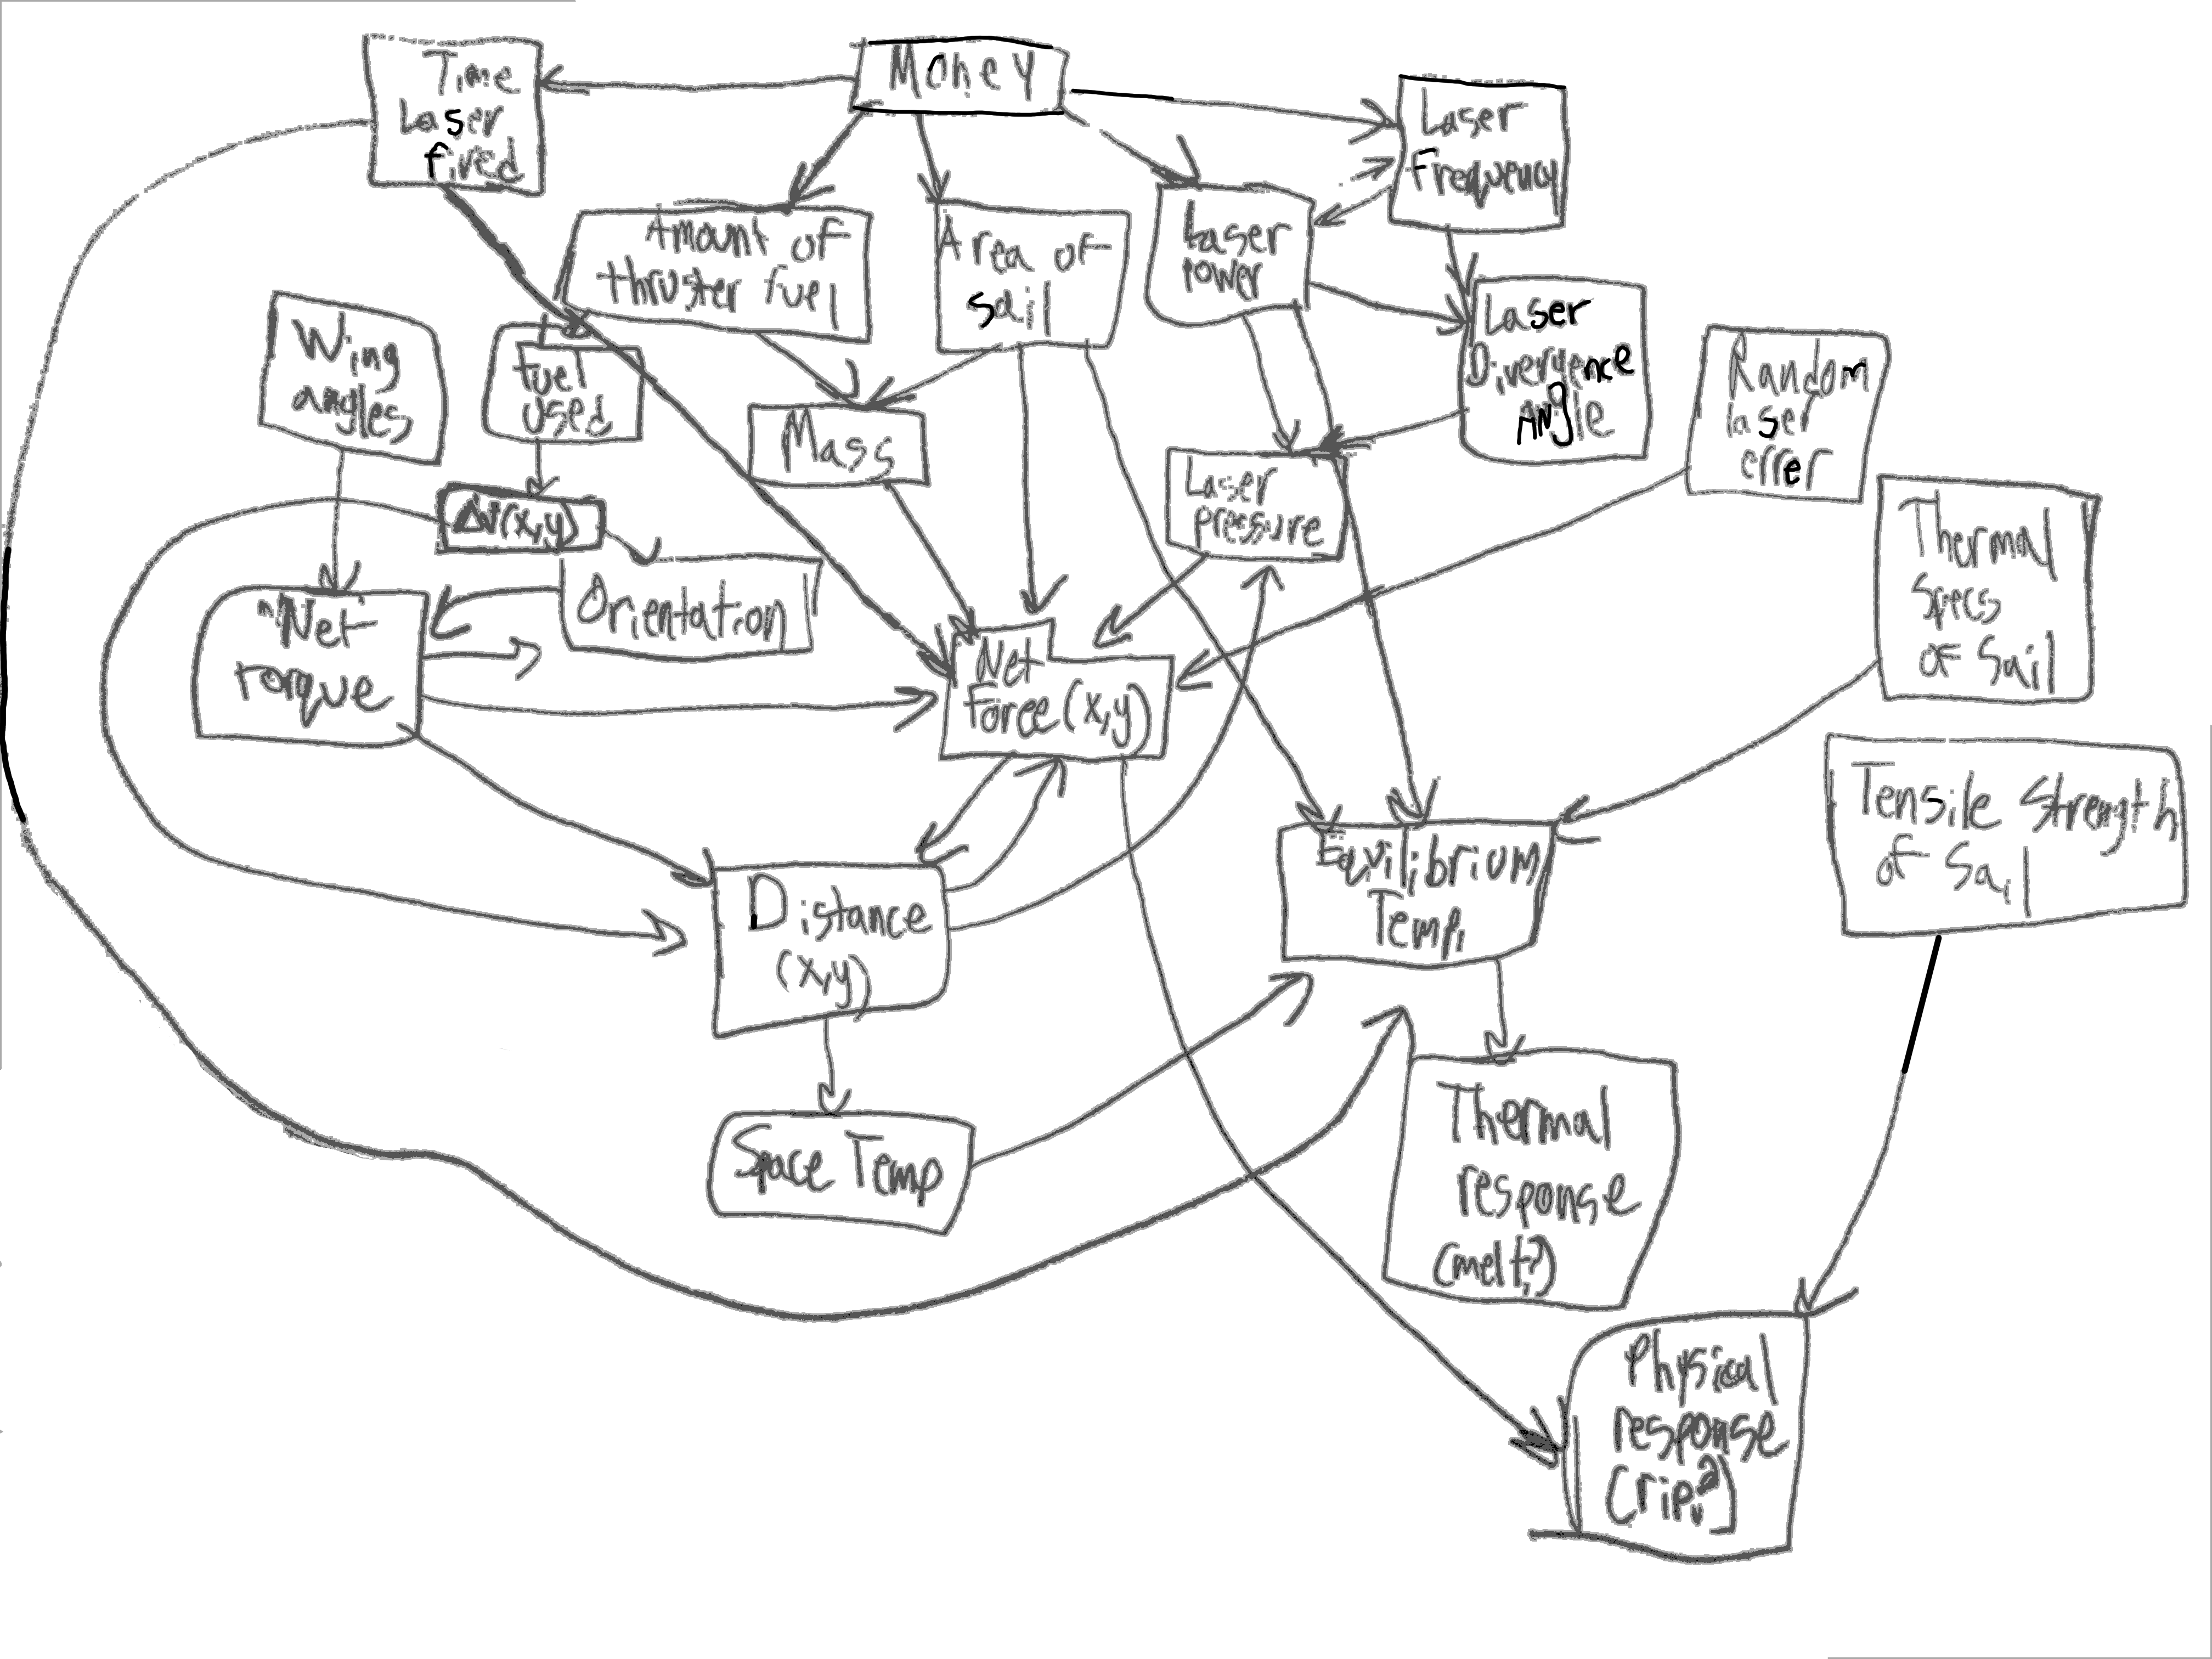 Time
Laser
fired
Money
Laser
Frequency
Amount of
thruster fuel
Area of
sail
Laser
power
Wing
angles
fuel
used
Mass
Laser
Divergence
Angle
Random
laser
error
Laser
pressure
Δv(x,y)
Thermal
Specs
of Sail
Orientation
Net
Torque
Net
force(x,y)
Tensile Strength
of Sail
Distance
(x,y)
Equilibrium
Temp.
Space Temp
Thermal
response
(melt?)
Physical
response
(rip?)